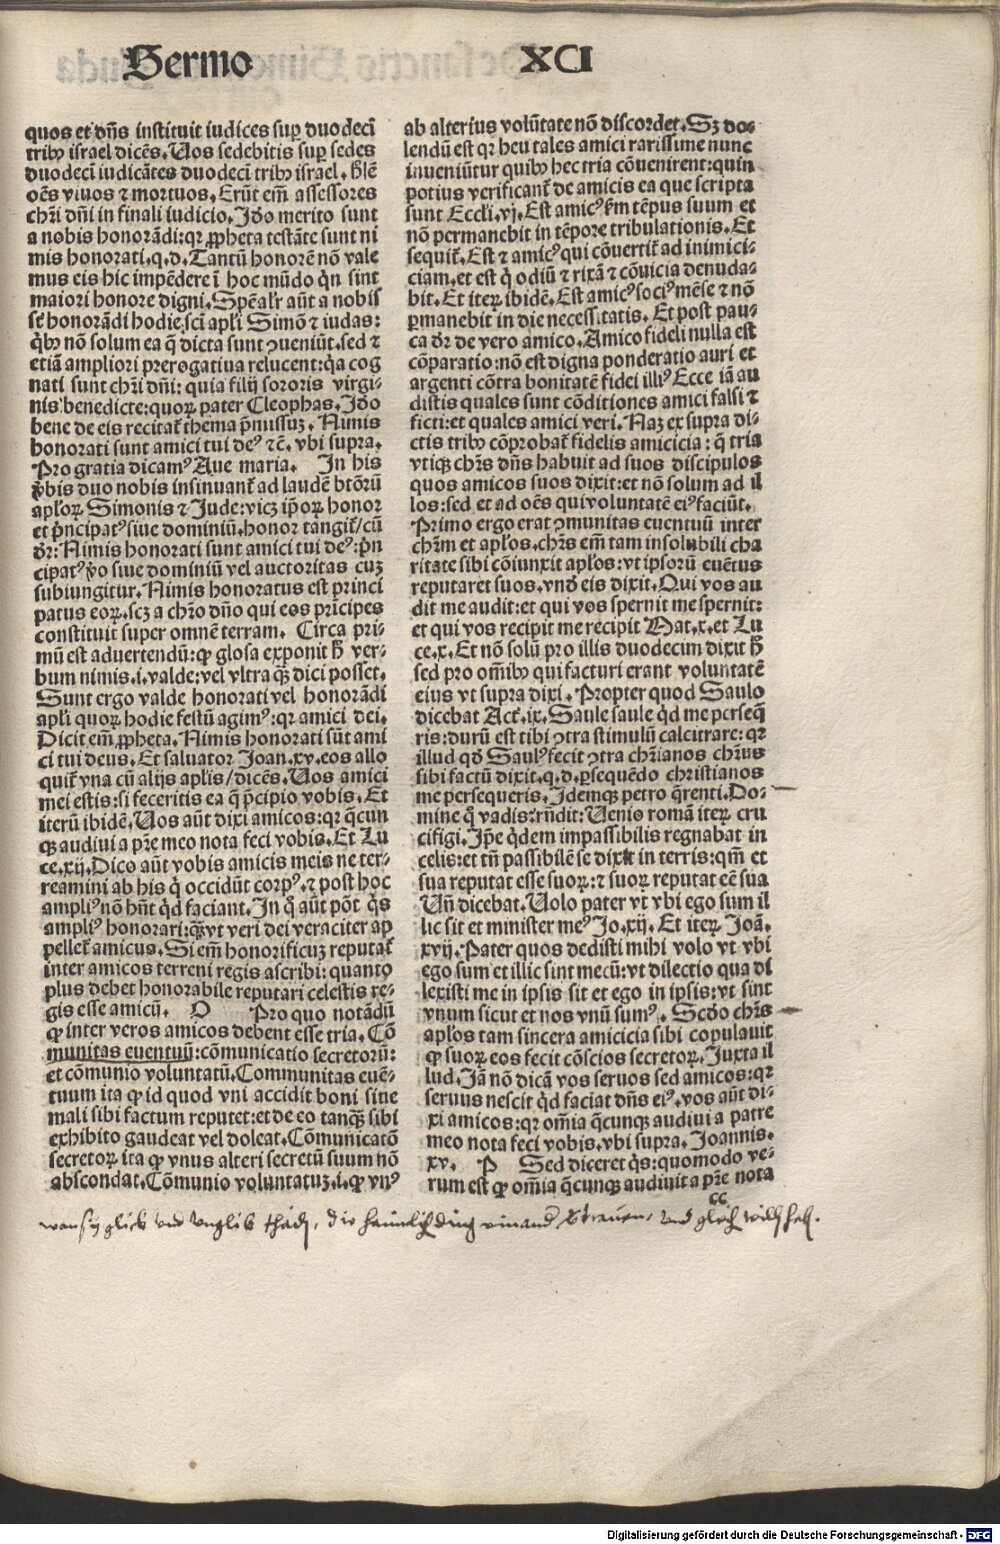 Sermo XCI
quos et dn̄s instituit iudices suꝑ duodecī
tribꝰ israel dicēs. Vos sedebitis suꝑ sedes
duodeci iudicātes duodeci tribꝰ israel. h̄lē
oēs viuos ⁊ mortuos. Erūt em̄ assessores
chr̄i dn̄i in finali iudicio. Idō merito sunt
a nobis honorādi: qꝛ ꝓpheta testāte sunt ni
mis honorati. q. d. Tantū honorē nō vale
mus eis hic impēdere ī hoc mūdo qn̄ sint
maiori honore digni. Spēalr̄ aūt a nobis
st̄ honorādi hodie sc̄i apl̄i Simō ⁊ iudas:
qͥbꝰ nō solum ea q̄ dicta sunt ꝯueniūt. sed ⁊
etiā ampliori prerogatiua relucent: qͥa cog
nati sunt chr̄i dn̄i: quia filij sororis virgi⸗
nis benedicte: quoꝝ pater Cleophas. Idō
bene de eis recitat᷑ thema p̄missuꝫ. Nimis
honorati sunt amici tui deꝰ ⁊c̄. vbi supra.
Pro gratia dicamꝰ Aue maria. In his
v̄bis duo nobis insinuant᷑ ad laudē btōrū
apl̓oꝝ Simonis ⁊ Jude: vicꝫ ip̄oꝝ honor
et p̄ncipatꝰ siue dominiū. honor tangit᷑ / cū
dr̄: Nimis honorati sunt amici tui deꝰ: p̄n
cipatꝰ v̓o siue dominiū vel auctoritas cuꝫ
subiungitur. Nimis honoratus est princi
patus eoꝝ. scꝫ a chr̄o dn̄o qui eos prīcipes
constituit super omnē terram. Circa pri⸗
mū est aduertendū: ꝙ glosa exponit h̄ ver⸗
bum nimis. i. valde: vel vltra qꝫ dici posset.
Sunt ergo valde honorati vel honorādi
apl̓i quoꝝ hodie festū agimꝰ: qꝛ amici dei.
Dicit em̄ ꝓpheta. Nimis honorati sūt ami
ci tui deus. Et saluator Joan. xv. eos allo
quit᷑ vna cū alijs apl̓is / dicēs. Vos amici
mei estis: si feceritis ea q̄ p̄cipio vobis. Et
iterū ibidē. Vos aūt dixi amicos: qꝛ q̄cun
qꝫ audiui a pr̄e meo nota feci vobis. Et Lu
ce. xij. Dico aūt vobis amicis meis ne ter⸗
reamini ab his qͥ occidūt corpꝰ. ⁊ post hoc
ampliꝰ nō hn̄t qͥd faciant. In qͦ aūt pōt qͥs
ampliꝰ honorari: qꝫ vt veri dei veraciter ap
pellet᷑ amicus. Si em̄ honorificuꝫ reputat᷑
inter amicos terreni regis ascribi: quanto
plus debet honorabile reputari celestis re⸗
gis esse amicū. O Pro quo notādū
ꝙ inter veros amicos debent esse tria. Cō
munitas euentuū: cōmunicatio secretorū:
et cōmunio voluntatū. Communitas euē⸗
tuum ita ꝙ id quod vni accidit boni siue
mali sibi factum reputet: et de eo tanqꝫ sibi
exhibito gaudeat vel doleat. Cōmunicatō
secretoꝝ ita ꝙ vnus alteri secretū suum nō
abscondat. Cōmunio voluntatuꝫ. i. ꝙ vnꝰ
ab alterius volūtate nō discordet. Sꝫ do⸗
lendū est qꝛ heu tales amici rarissime nunc
inueniūtur quibꝰ hec tria cōuenirent: quin
potius verificant᷑ de amicis ea que scripta
sunt Eccl̓i. vj. Est amicꝰ ẜm tēpus suum et
nō permanebit in tēpore tribulationis. Et
sequit᷑. Est ⁊ amicꝰ qui cōuertit᷑ ad inimici⸗
ciam. et est qͥ odiū ⁊ rixā ⁊ cōuicia denuda⸗
bit. Et iteꝝ ibidē. Est amicꝰ sociꝰ mēse ⁊ nō
ꝑmanebit in die necessitatis. Et post pau⸗
ca dr̄ de vero amico. Amico fideli nulla est
cōparatio: nō est digna ponderatio auri et
argenti cōtra bonitatē fidei illiꝰ Ecce iā au
distis quales sunt cōditiones amici falsi ⁊
ficti: et quales amici veri. Naꝫ ex supra di⸗
ctis tribꝰ cōprobat᷑ fidelis amicicia: q̄ tria
vtiqꝫ chr̄s dn̄s habuit ad suos discipulos
quos amicos suos dixit: et nō solum ad il
los: sed et ad oēs qui voluntatē eiꝰ faciūt.
Primo ergo erat ꝯmunitas euentuū inter
chr̄m et apl̓os. chr̄s em̄ tam insolubili cha
ritate sibi cōiunxit apl̓os: vt ipsorū euētus
reputaret suos. vnd̓ eis dixit. Qui vos au
dit me audit: et qui vos spernit me spernit:
et qui vos recipit me recipit Mat. x. et Lu
ce. x. Et nō solū pro illis duodecim dixit h̄
sed pro om̄ibꝰ qui facturi erant voluntatē
eius vt supra dixi. Propter quod Saulo
dicebat Act᷑. ix. Saule saule qͥd me perseq̄
ris: durū est tibi ꝯtra stimulū calcitrare: qꝛ
illud qd̓ Saulꝰ fecit ꝯtra chr̄ianos chr̄us
sibi factū dixit. q. d. ꝑsequēdo christianos
me persequeris. Idemqꝫ petro q̄renti. Do⸗
mine qͦ vadis: rn̄dit: Uenio romā iteꝝ cru
cifigi. Ip̄e qͥdem impassibilis regnabat in
celis: et tn̄ passibilē se dixit in terris: qm̄ et
sua reputat esse suoꝝ: ⁊ suoꝝ reputat eē sua
Un̄ dicebat. Uolo pater vt vbi ego sum il
lic sit et minister meꝰ Jo. xij. Et iteꝝ Joā.
xvij. Pater quos dedisti mihi volo vt vbi
ego sum et illic sint mecū: vt dilectio qua di
lexisti me in ipsis sit et ego in ipsis: vt sint
vnum sicut et nos vnū sumꝰ. Scd̓o chr̄s
apl̓os tam sincera amicicia sibi copulauit
ꝙ suoꝝ eos fecit cōscios secretoꝝ. Juxta il
lud. Jā nō dicā vos seruos sed amicos: qꝛ
seruus nescit qͥd faciat dn̄s eiꝰ. vos aūt di⸗
xi amicos: qꝛ om̄ia q̄cunqꝫ audiui a patre
meo nota feci vobis. vbi supra. Joannis.
xv. P Sed diceret qͥs: quomodo ve⸗
rum est ꝙ om̄ia q̄cunqꝫ audiuit a pr̄e nota
cc
Digitalisierung gefördert durch die Deutsche Forschungsgemeinschaft - DFG